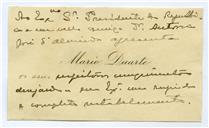 Ao Ex.mo Sr. Presidente da Republica
José d'Almeida apresenta
Mario Duarte
os seus respeitosos cumprimentos
desejando a sua Ex.ª um rapido
e completo restabelecimento.